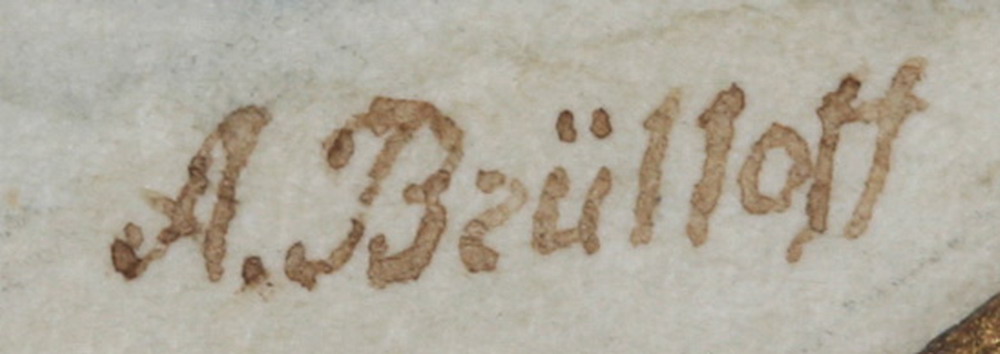 A. Brüloff